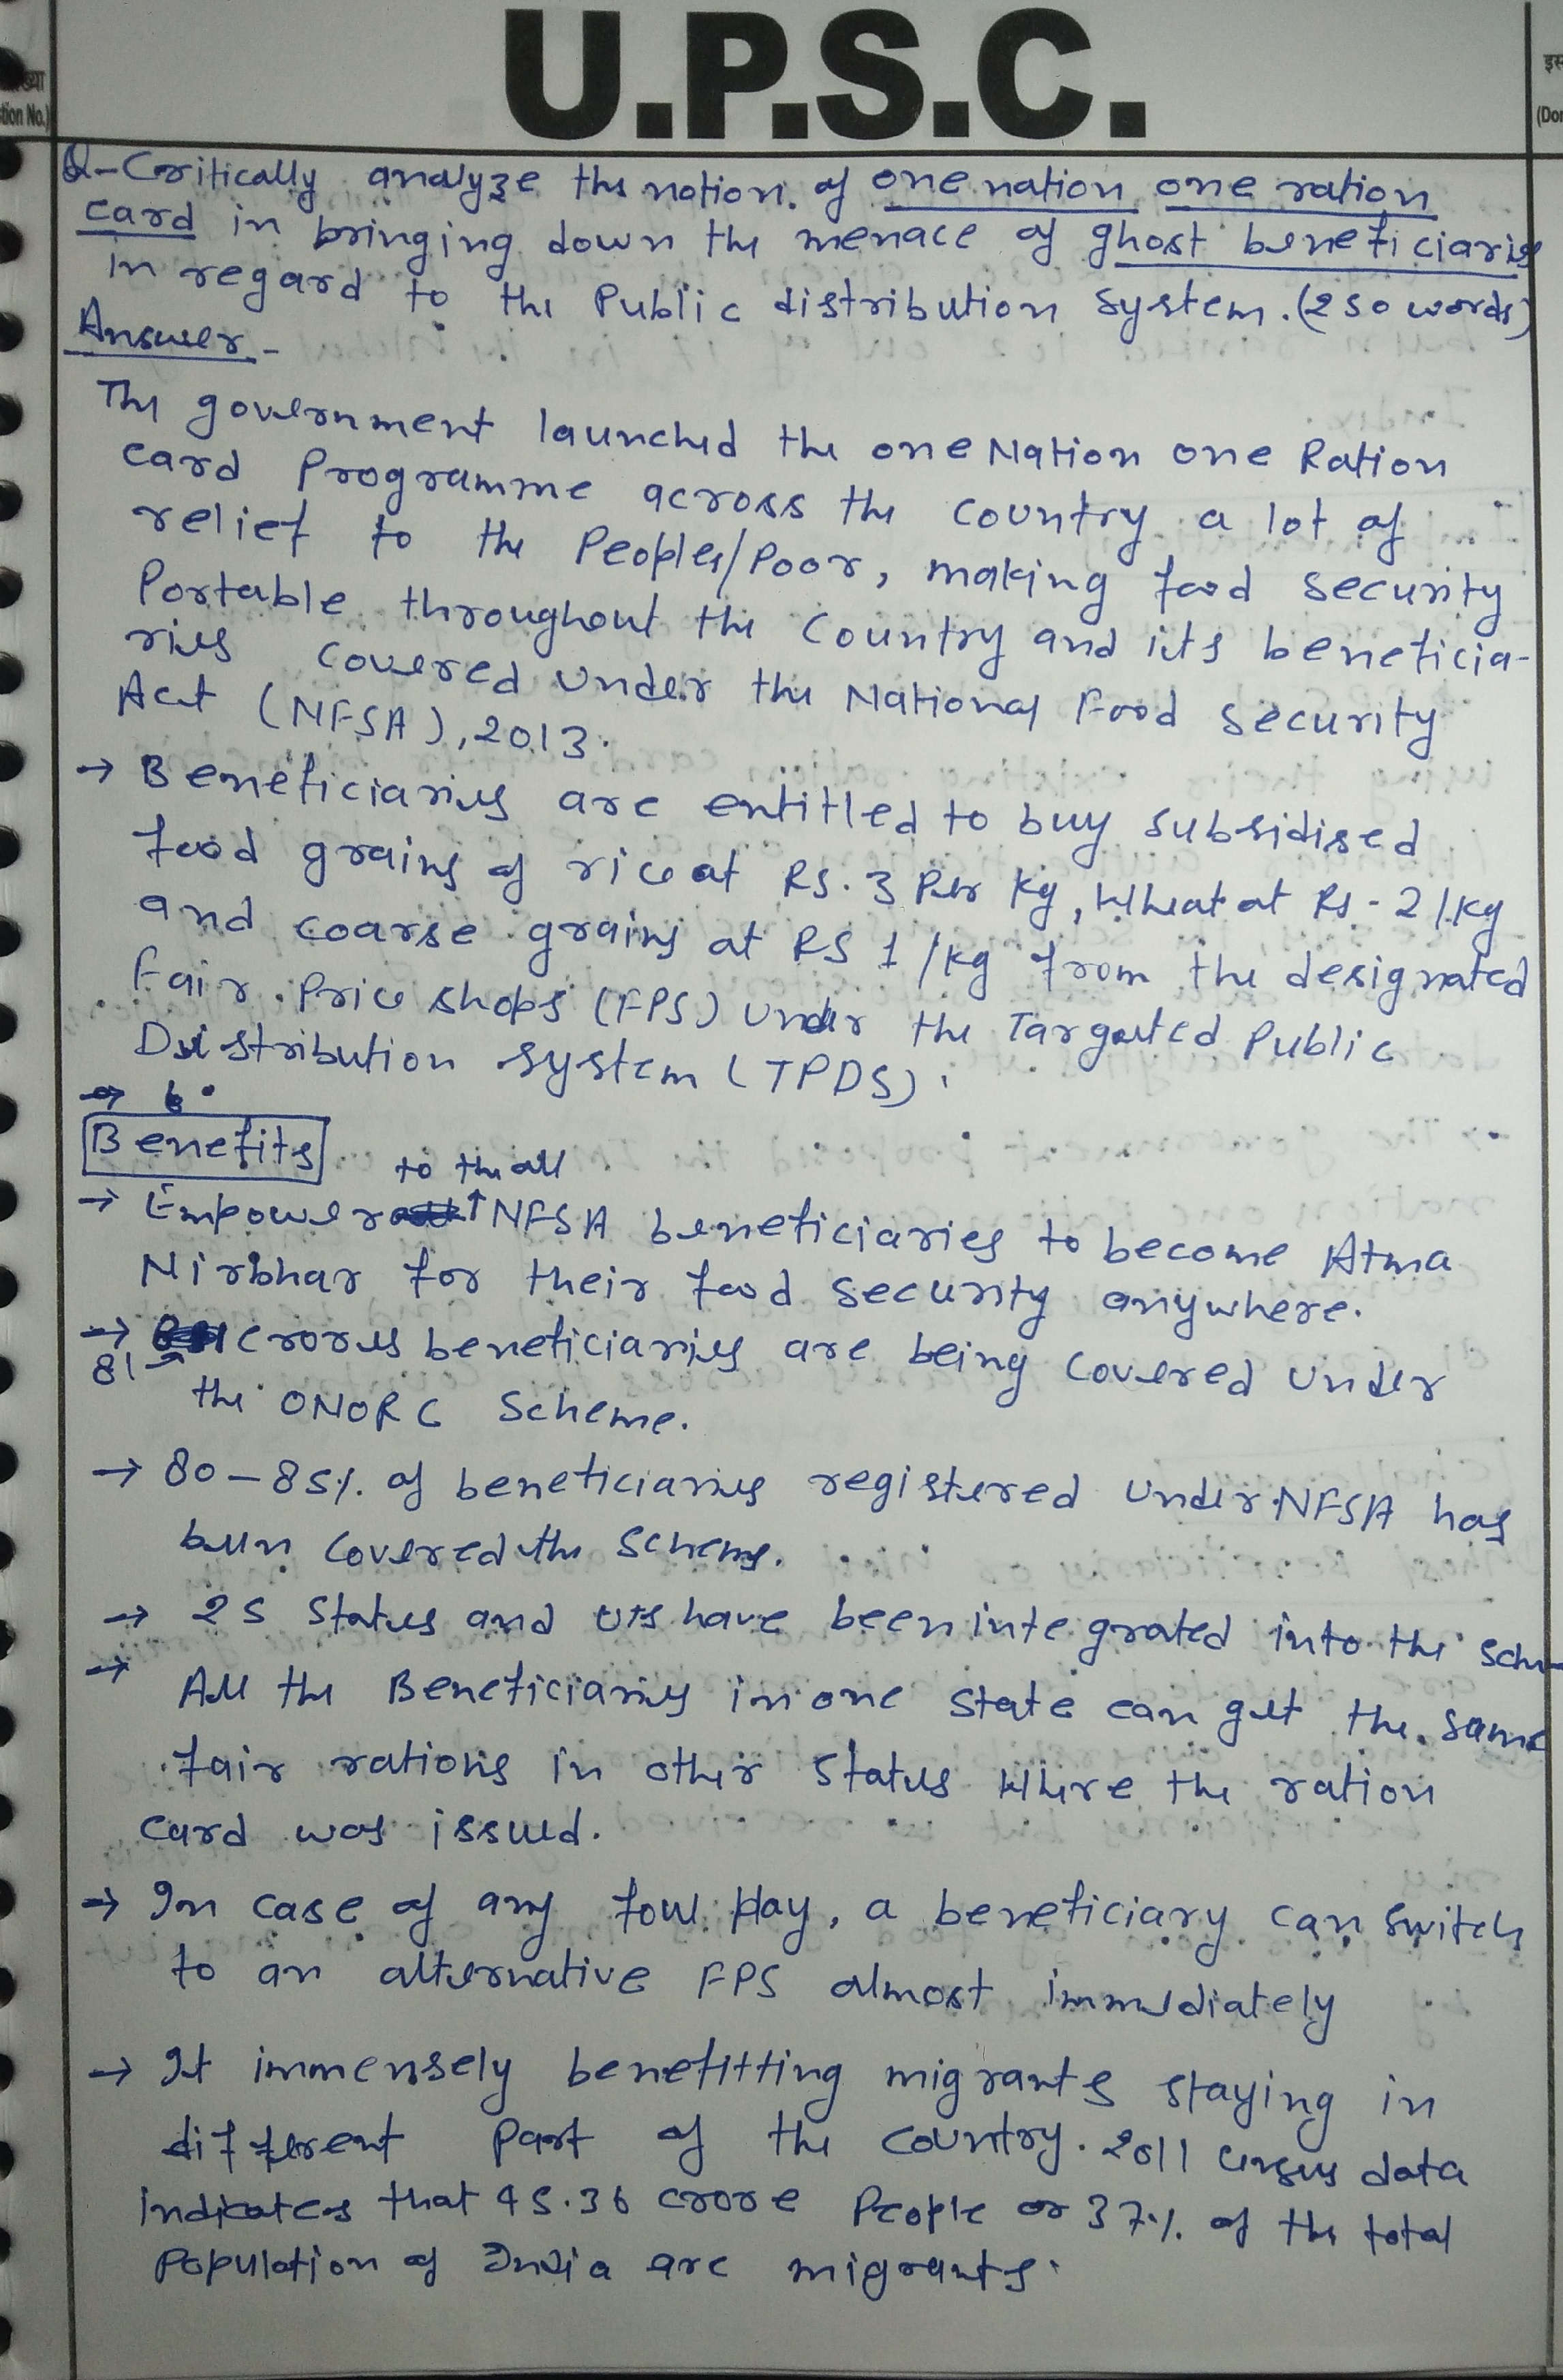 U.P.S.C.
tion No.)
(Don
Q-Critically analyze the notion. of one nation one ration
card in bringing down the menace of ghost beneficiaries
in regard to the Public distribution system. (250 words)
Answer-
The government launched the one Nation one Ration
card Programme across the country a lot of
relief to the Peoples/Poor, making food security
Portable throughout the Country and its beneficia-
ries covered under the National Food Security
Act (NFSA), 2013.
→ Beneficiaries are entitled to buy subsidised
food grains of rice at Rs. 3 Per Kg, Wheat at Rs - 2/Kg
and coarse grains at RS 1/Kg from the designated
Fair Price shops (FPS) under the Targeted Public
Distribution System (TPDS).
→
Benefits
to the all
→ Empower NFSA beneficiaries to become Atma
Nirbhar for their food security anywhere.
→ crores beneficiaries are being covered under
81 →
the ONORC Scheme.
→ 80-85% of beneficiaries registered under NFSA has
been covered the scheme.
→ 25 States and UTs have been integrated into the sche-
→ All the Beneficiaries in one State can get the same
fair rations in other States where the ration
card was issued.
→ In case of any foul play, a beneficiary can switch
to an alternative FPS almost immediately
→ It immensely benefitting migrants staying in
different part of the country. 2011 census data
indicates that 45.36 crore People or 37% of the total
Population of India are migrants.